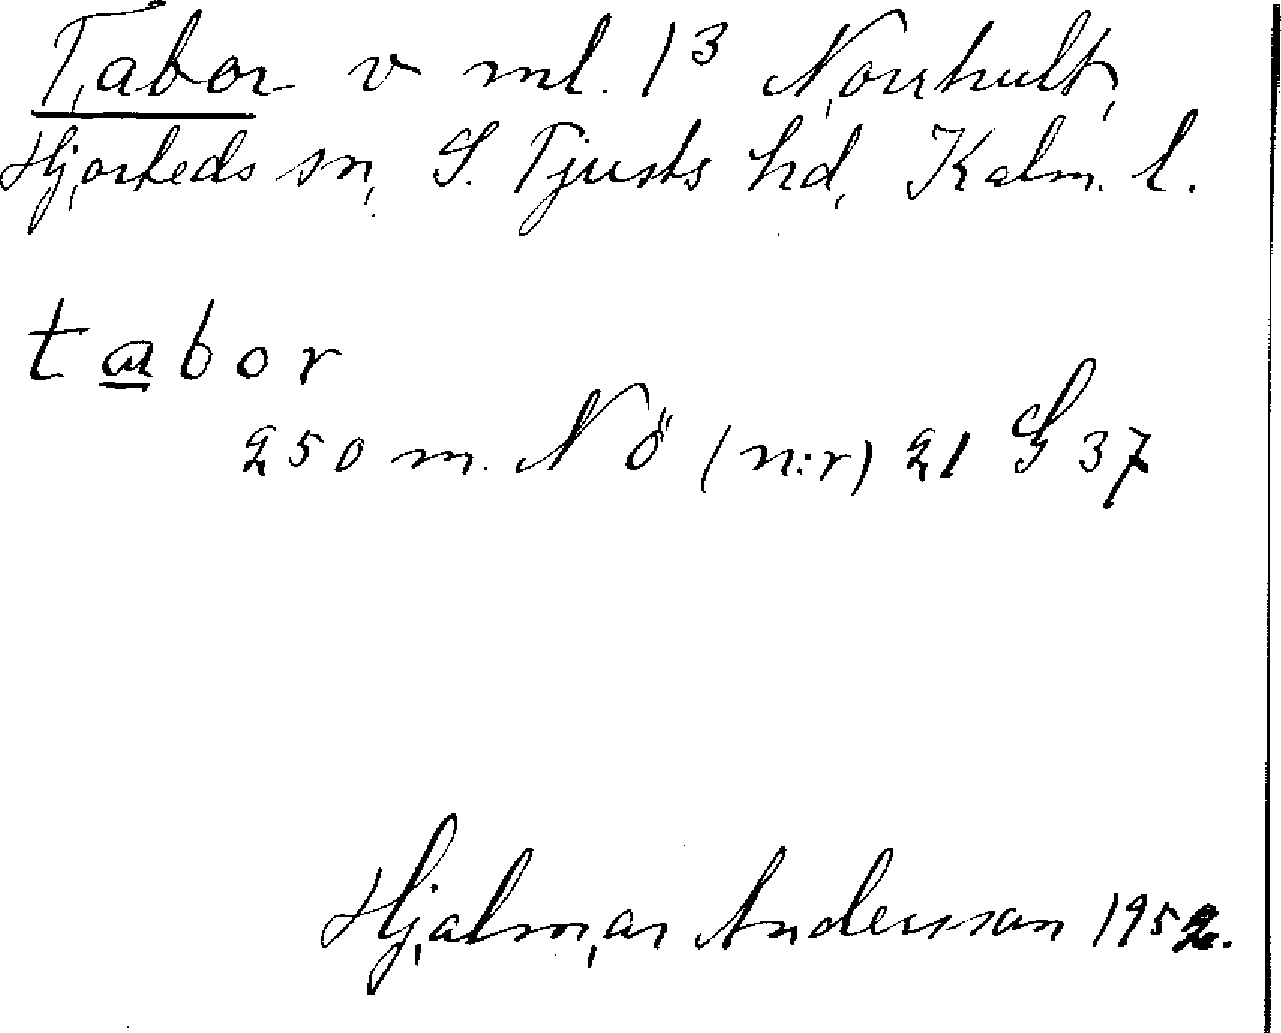 Tabor v ml. 1³ Norrhult,
Hjorteds sn, S. Tjusts hd, Kalm. l.
tabor
250 m. N ö (n:r) 21 G 37
Hjalmar Andersson 1952.